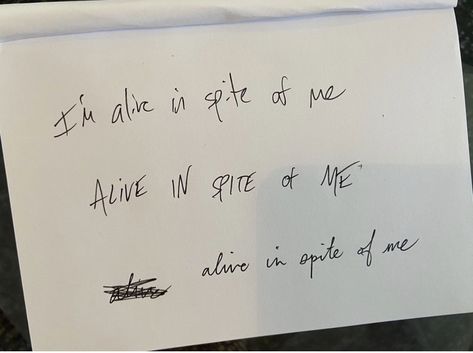 I'm alive in spite of me
ALIVE IN SPITE of ME
alive in spite of me